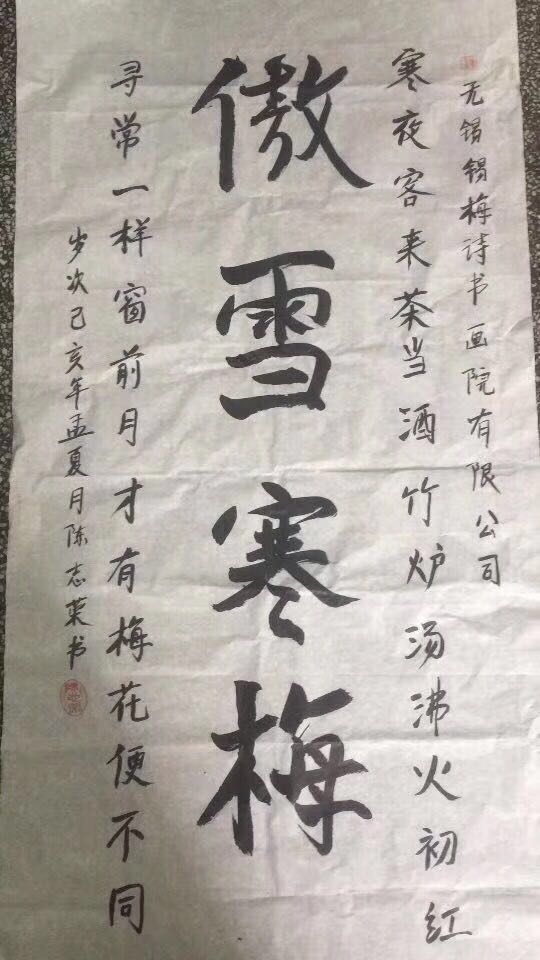 无锡锡梅诗书画院有限公司
寒夜客来茶当酒竹炉汤沸火初红
傲雪寒梅
寻常一样窗前月才有梅花便不同
岁次己亥年孟夏月陈志荣书